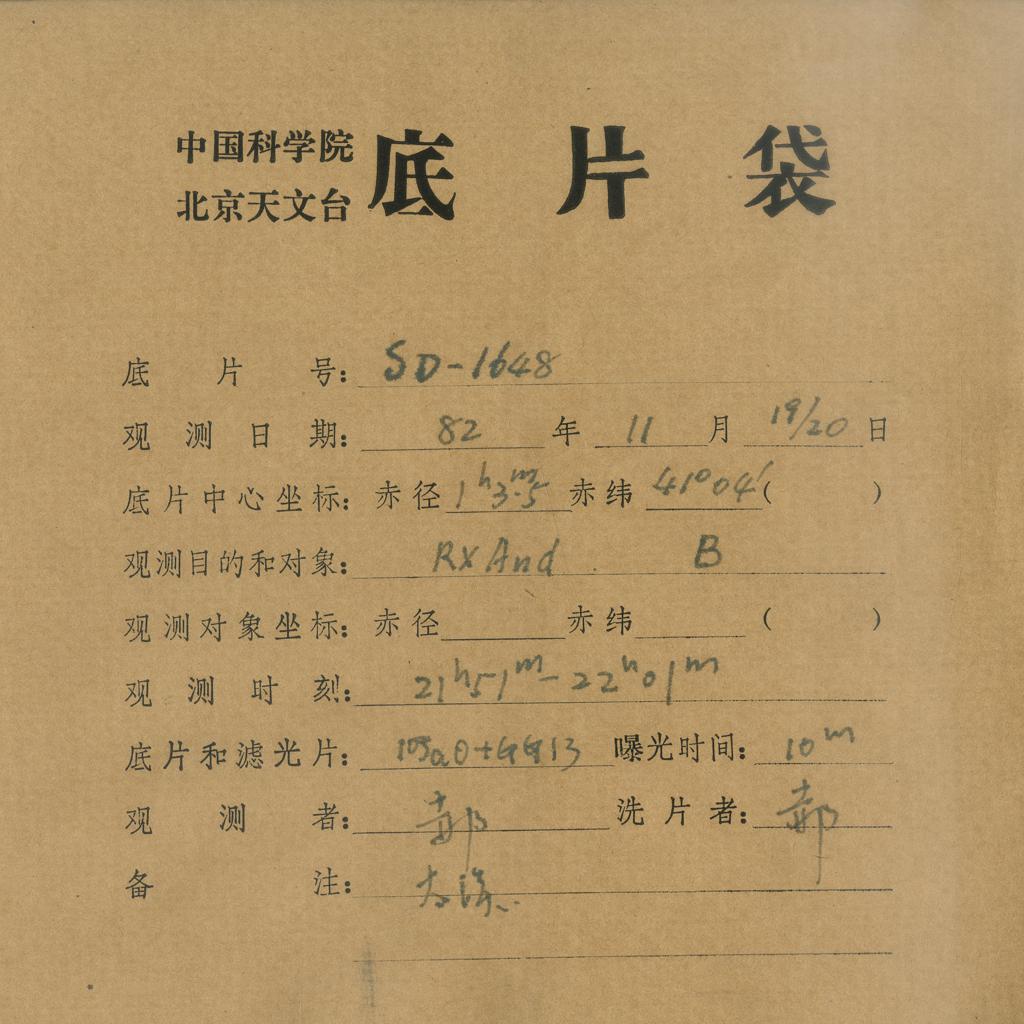 中国科学院
北京天文台
底片袋
底片号: SD-1648
观测日期: 82 年 11 月 19/20 日
底片中心坐标: 赤径 1h3m.5 赤纬 41°04′ ( )
观测目的和对象: RX And B
观测对象坐标: 赤径 赤纬 ( )
观测时刻: 21h51m-22h01m
底片和滤光片: 103aO+GG13 曝光时间: 10m
观测者: 郝 洗片者: 郝
备注: 太